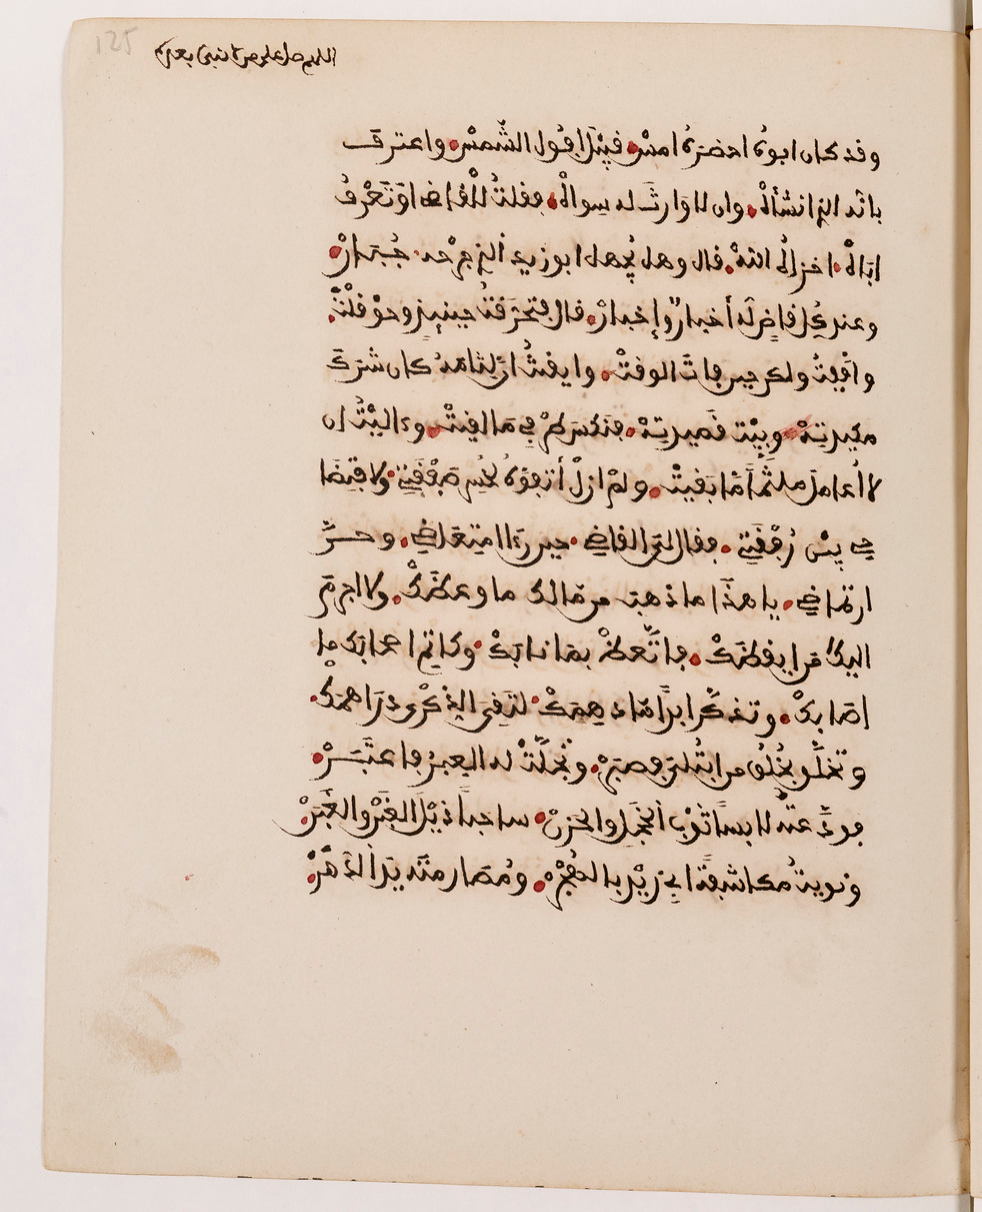 اللهم صل على من لا نبي بعده
وقد كان ابوه احضره امس قبيل افول الشمس واعترف
بانه الذي انشأه وان لا وارث له سواه فقلت للقاضي اوتعرف
اباه اخزاه الله قال وهل يجهل ابو زيد الذي جرحه جبار
وعند كل قاض له أخبار وإخبار قال فتحرقت حينيذ وحوقلت
وافقت ولكن حين فات الوقت وايقنت ان لثامه كان شرك
مكيدته وبيت قصيدته فنكس طرفي ما لقيت وءاليت ان
لا اعامل ملثما ما بقيت ولم ازل أتفوه لخسر صفقتي ولافتضا
حي بين رفقتي فقال لي القاضي حين رءا امتعاضي وحر
ارتماضي يا هذا ما ذهب من مالك ما وعظك ولا اجرم
اليك من ايقظك فاتعظ بما نابك وكاتم اصحابك ما
اصابك وتذكر ابدا ما دهمك لتقي الذكرى دراهمك
وتخلق بخلق من ابتلي فصبر وتجلت له العبر فاعتبر
فودعته لابسا ثوب الخجل والحزن ساحبا ذيل الغبن والغبن
ونويت مكاشفة ابي زيد بالهجر ومصارمته يد الدهر